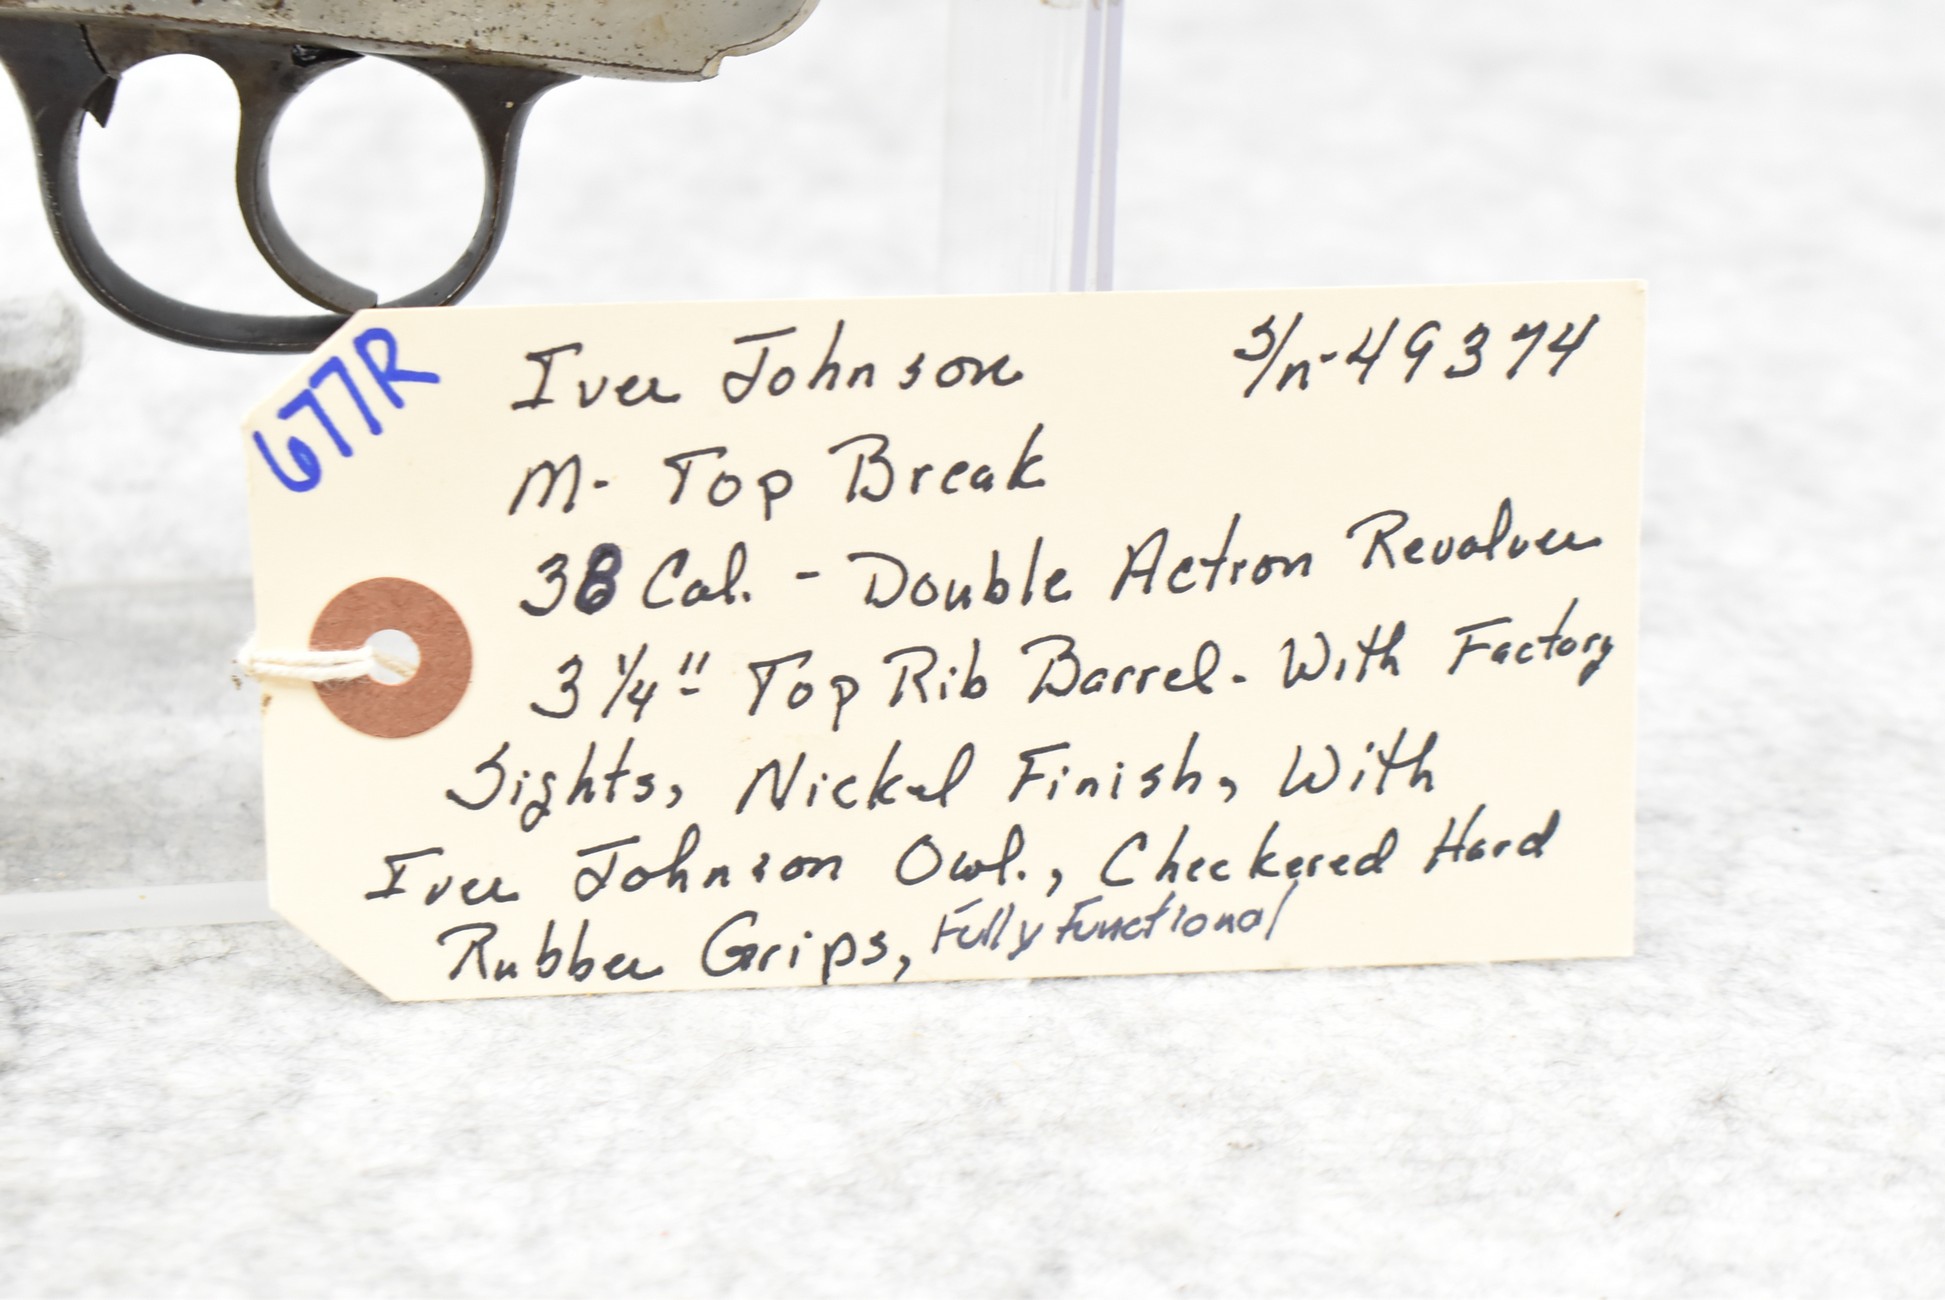 677R
Iver Johnson S/n-49374
M- Top Break
38 Cal. - Double Action Revolver
3 1/4" Top Rib Barrel - With Factory
Sights, Nickel Finish, With
Iver Johnson Owl., Checkered Hard
Rubber Grips, Fully Functional